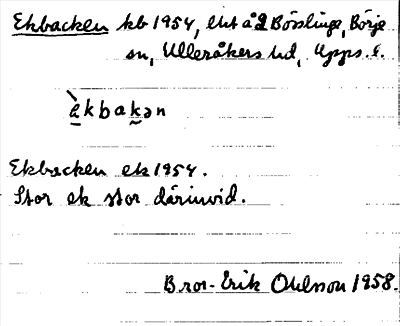 Ekbacken kb 1954, litt å2 Börslinge, Börje
sn, Ulleråkers hd, Upps. l.
èkbakən
Ekbacken ek 1954.
Stor ek stor därinvid.
Bror-Erik Ohlsson 1958.